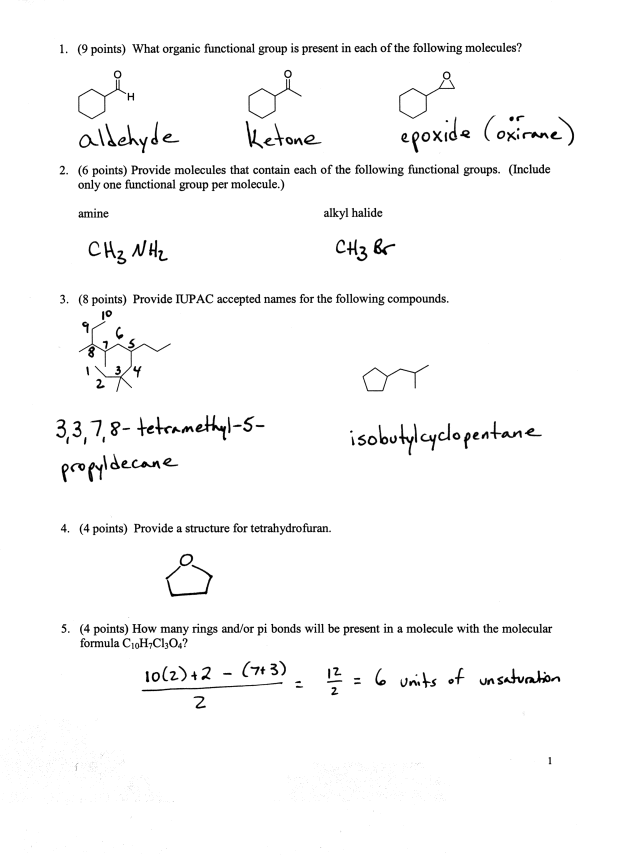 1. (9 points) What organic functional group is present in each of the following molecules?
O O O
H
aldehyde ketone epoxide (or oxirane)
2. (6 points) Provide molecules that contain each of the following functional groups. (Include
only one functional group per molecule.)
amine alkyl halide
CH3NH2 CH3Br
3. (8 points) Provide IUPAC accepted names for the following compounds.
10
9 6
8 7 5
1 3 4
2
3,3,7,8-tetramethyl-5-
propyldecane
isobutylcyclopentane
4. (4 points) Provide a structure for tetrahydrofuran.
O
5. (4 points) How many rings and/or pi bonds will be present in a molecule with the molecular
formula C10H7Cl3O4?
10(2)+2 - (7+3) = 12 = 6 units of unsaturation
2 2
1